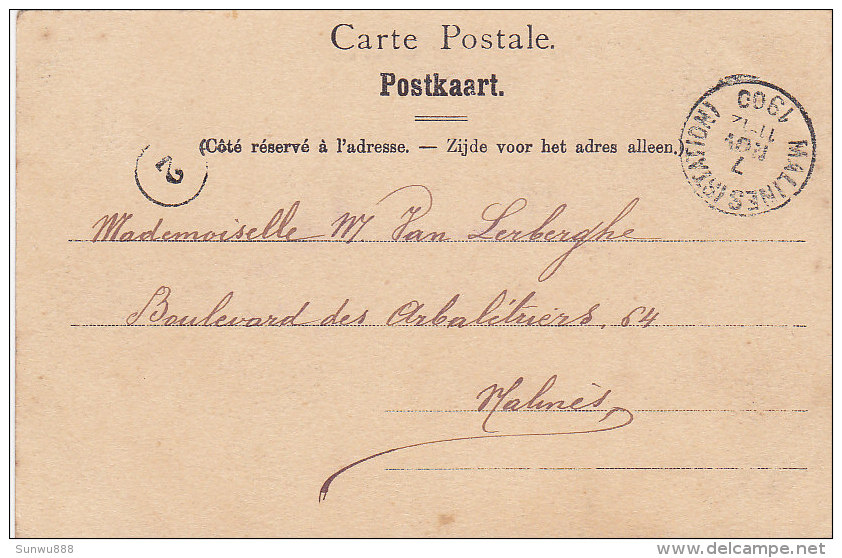 Carte Postale.
Postkaart.
(Côté réservé à l'adresse. — Zijde voor het adres alleen.)
MALINES (STATION)
7
NOV
11-12
1900
2
Mademoiselle M Van Lerberghe
Boulevard des Arbalétriers, 64
Malines
Sunwu888
delcampe.net